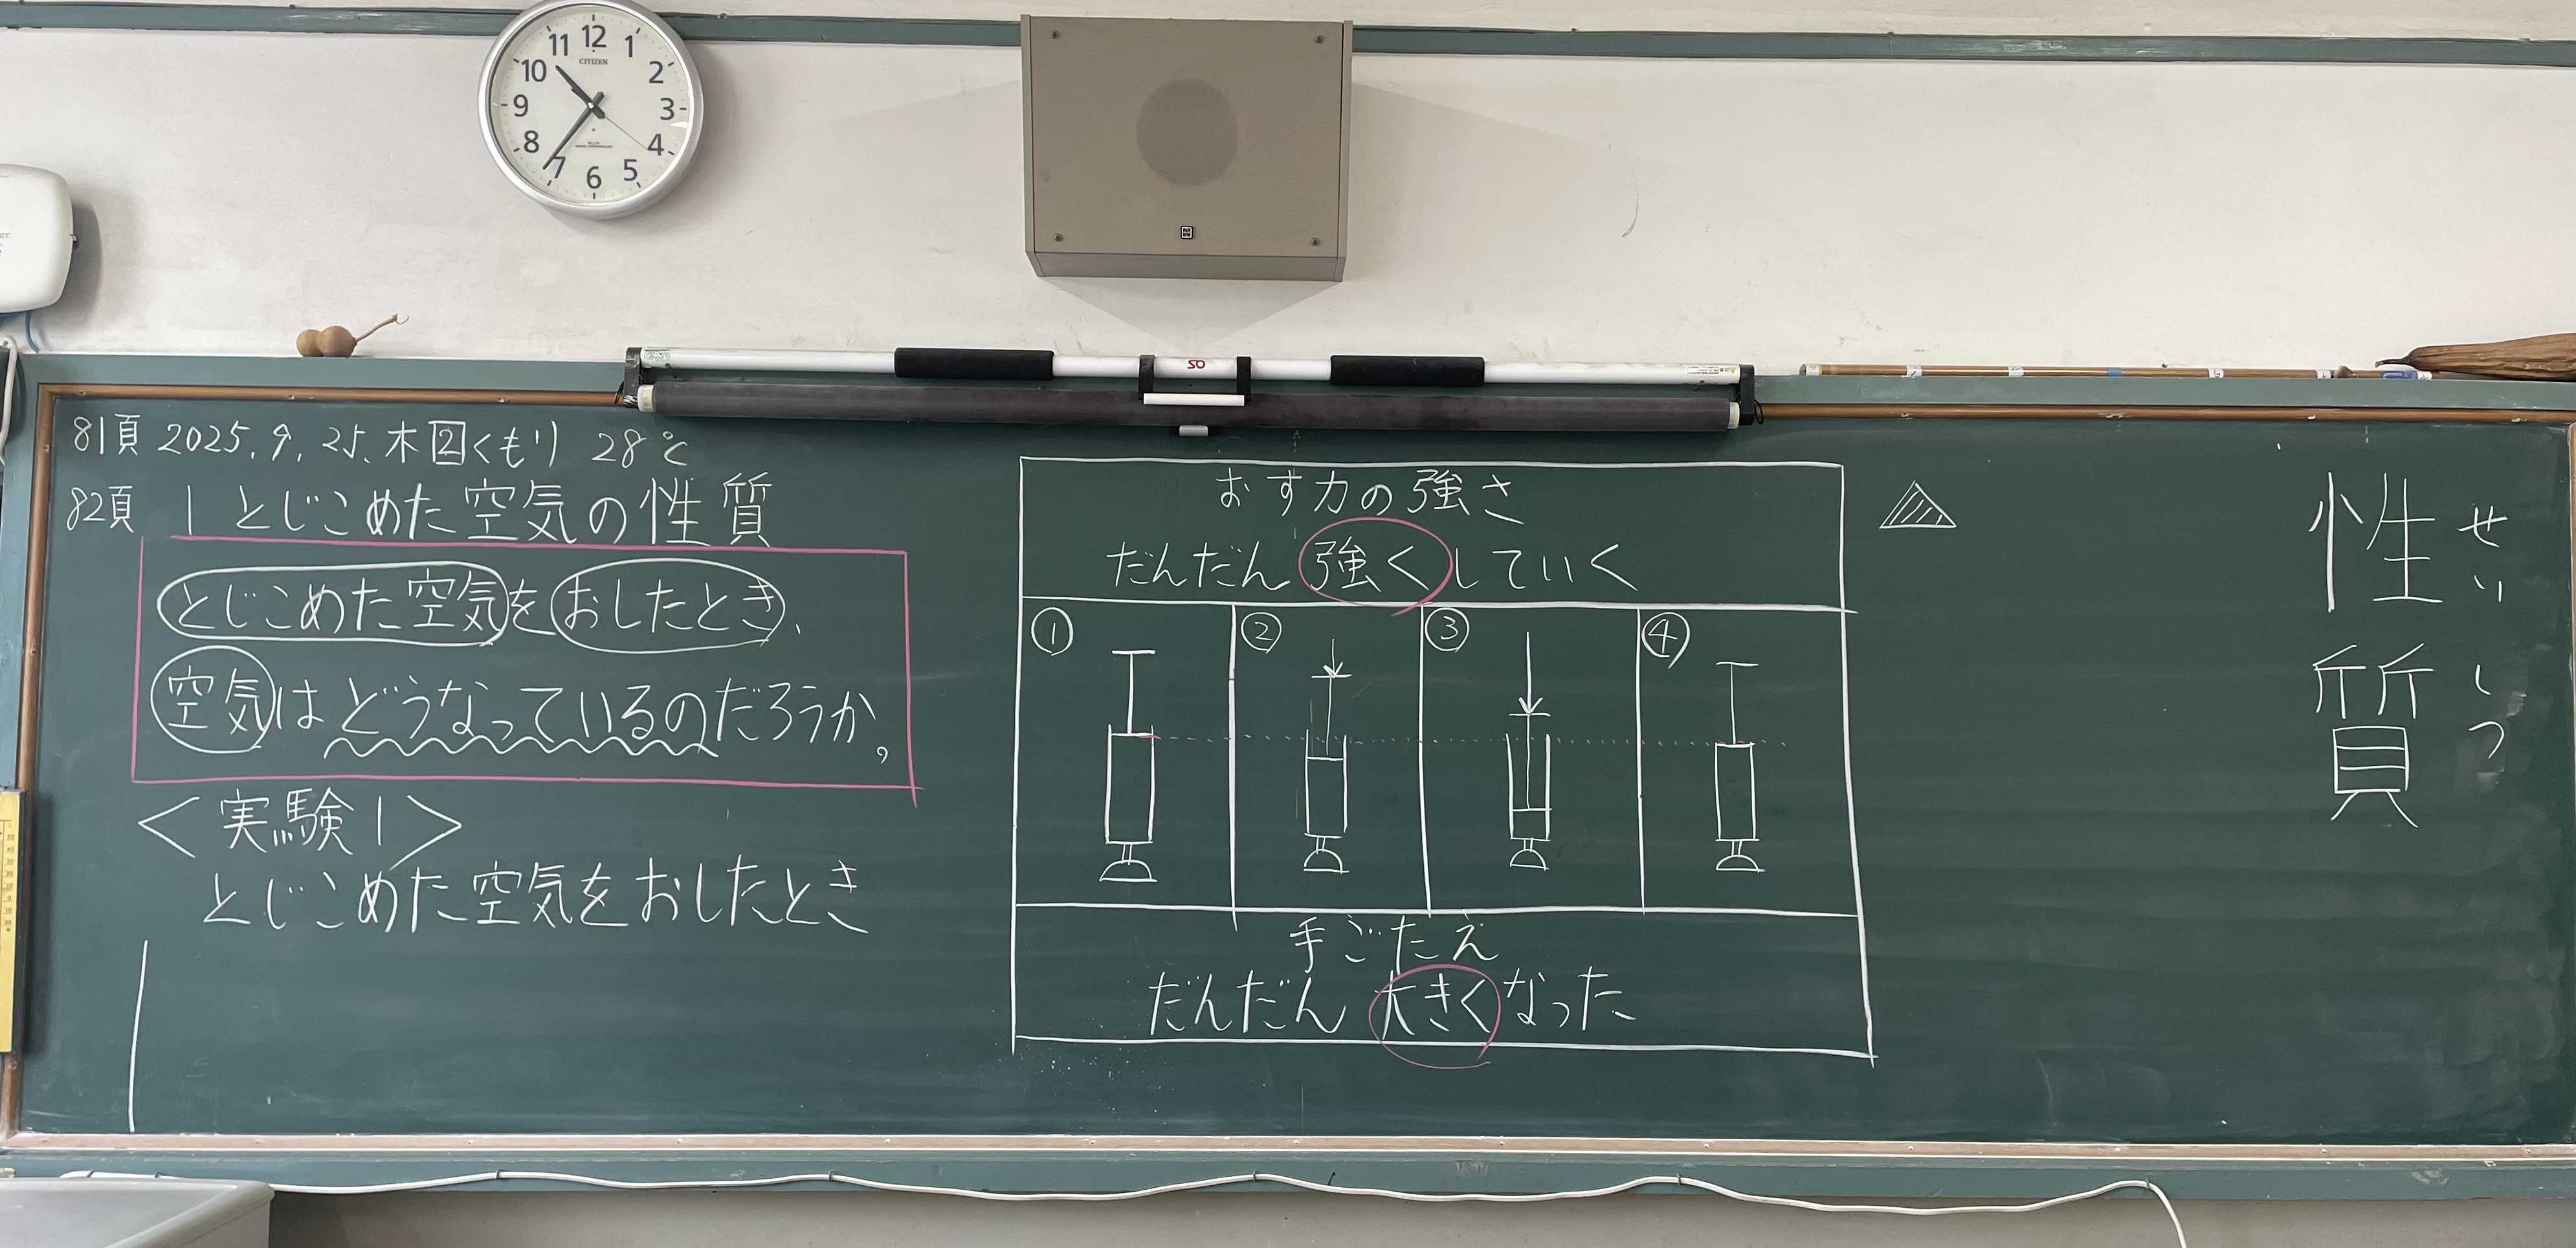 11 12 1
10 2
9 3
8 4
7 6 5
CITIZEN
81頁 2025.9.25.木②くもり 28℃
82頁 1 とじこめた空気の性質
とじこめた空気をおしたとき、
空気はどうなっているのだろうか。
<実験1>
とじこめた空気をおしたとき
おす力の強さ
だんだん強くしていく
① ② ③ ④
手ごたえ
だんだん大きくなった
性質
せいしつ